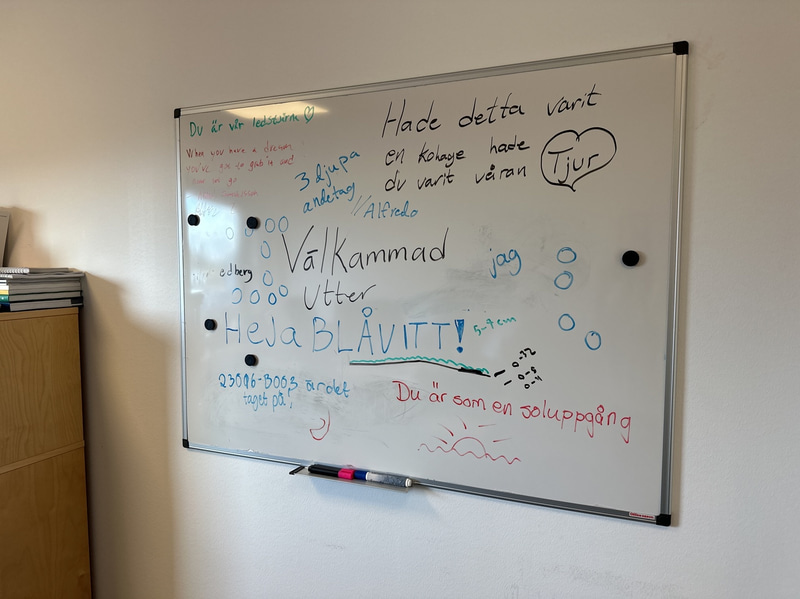 Du är vår ledstjärna
When you have a dream
you've got to grab it and
never let go
3 djupa
andetag
//Alfredo
Hade detta varit
en kohage hade
du varit våran Tjur
edberg
Välkammad
Utter
jag
HEJA BLÅVITT!
5-7 cm
0-12
0-8
0-4
är det
taget på;
Du är som en soluppgång